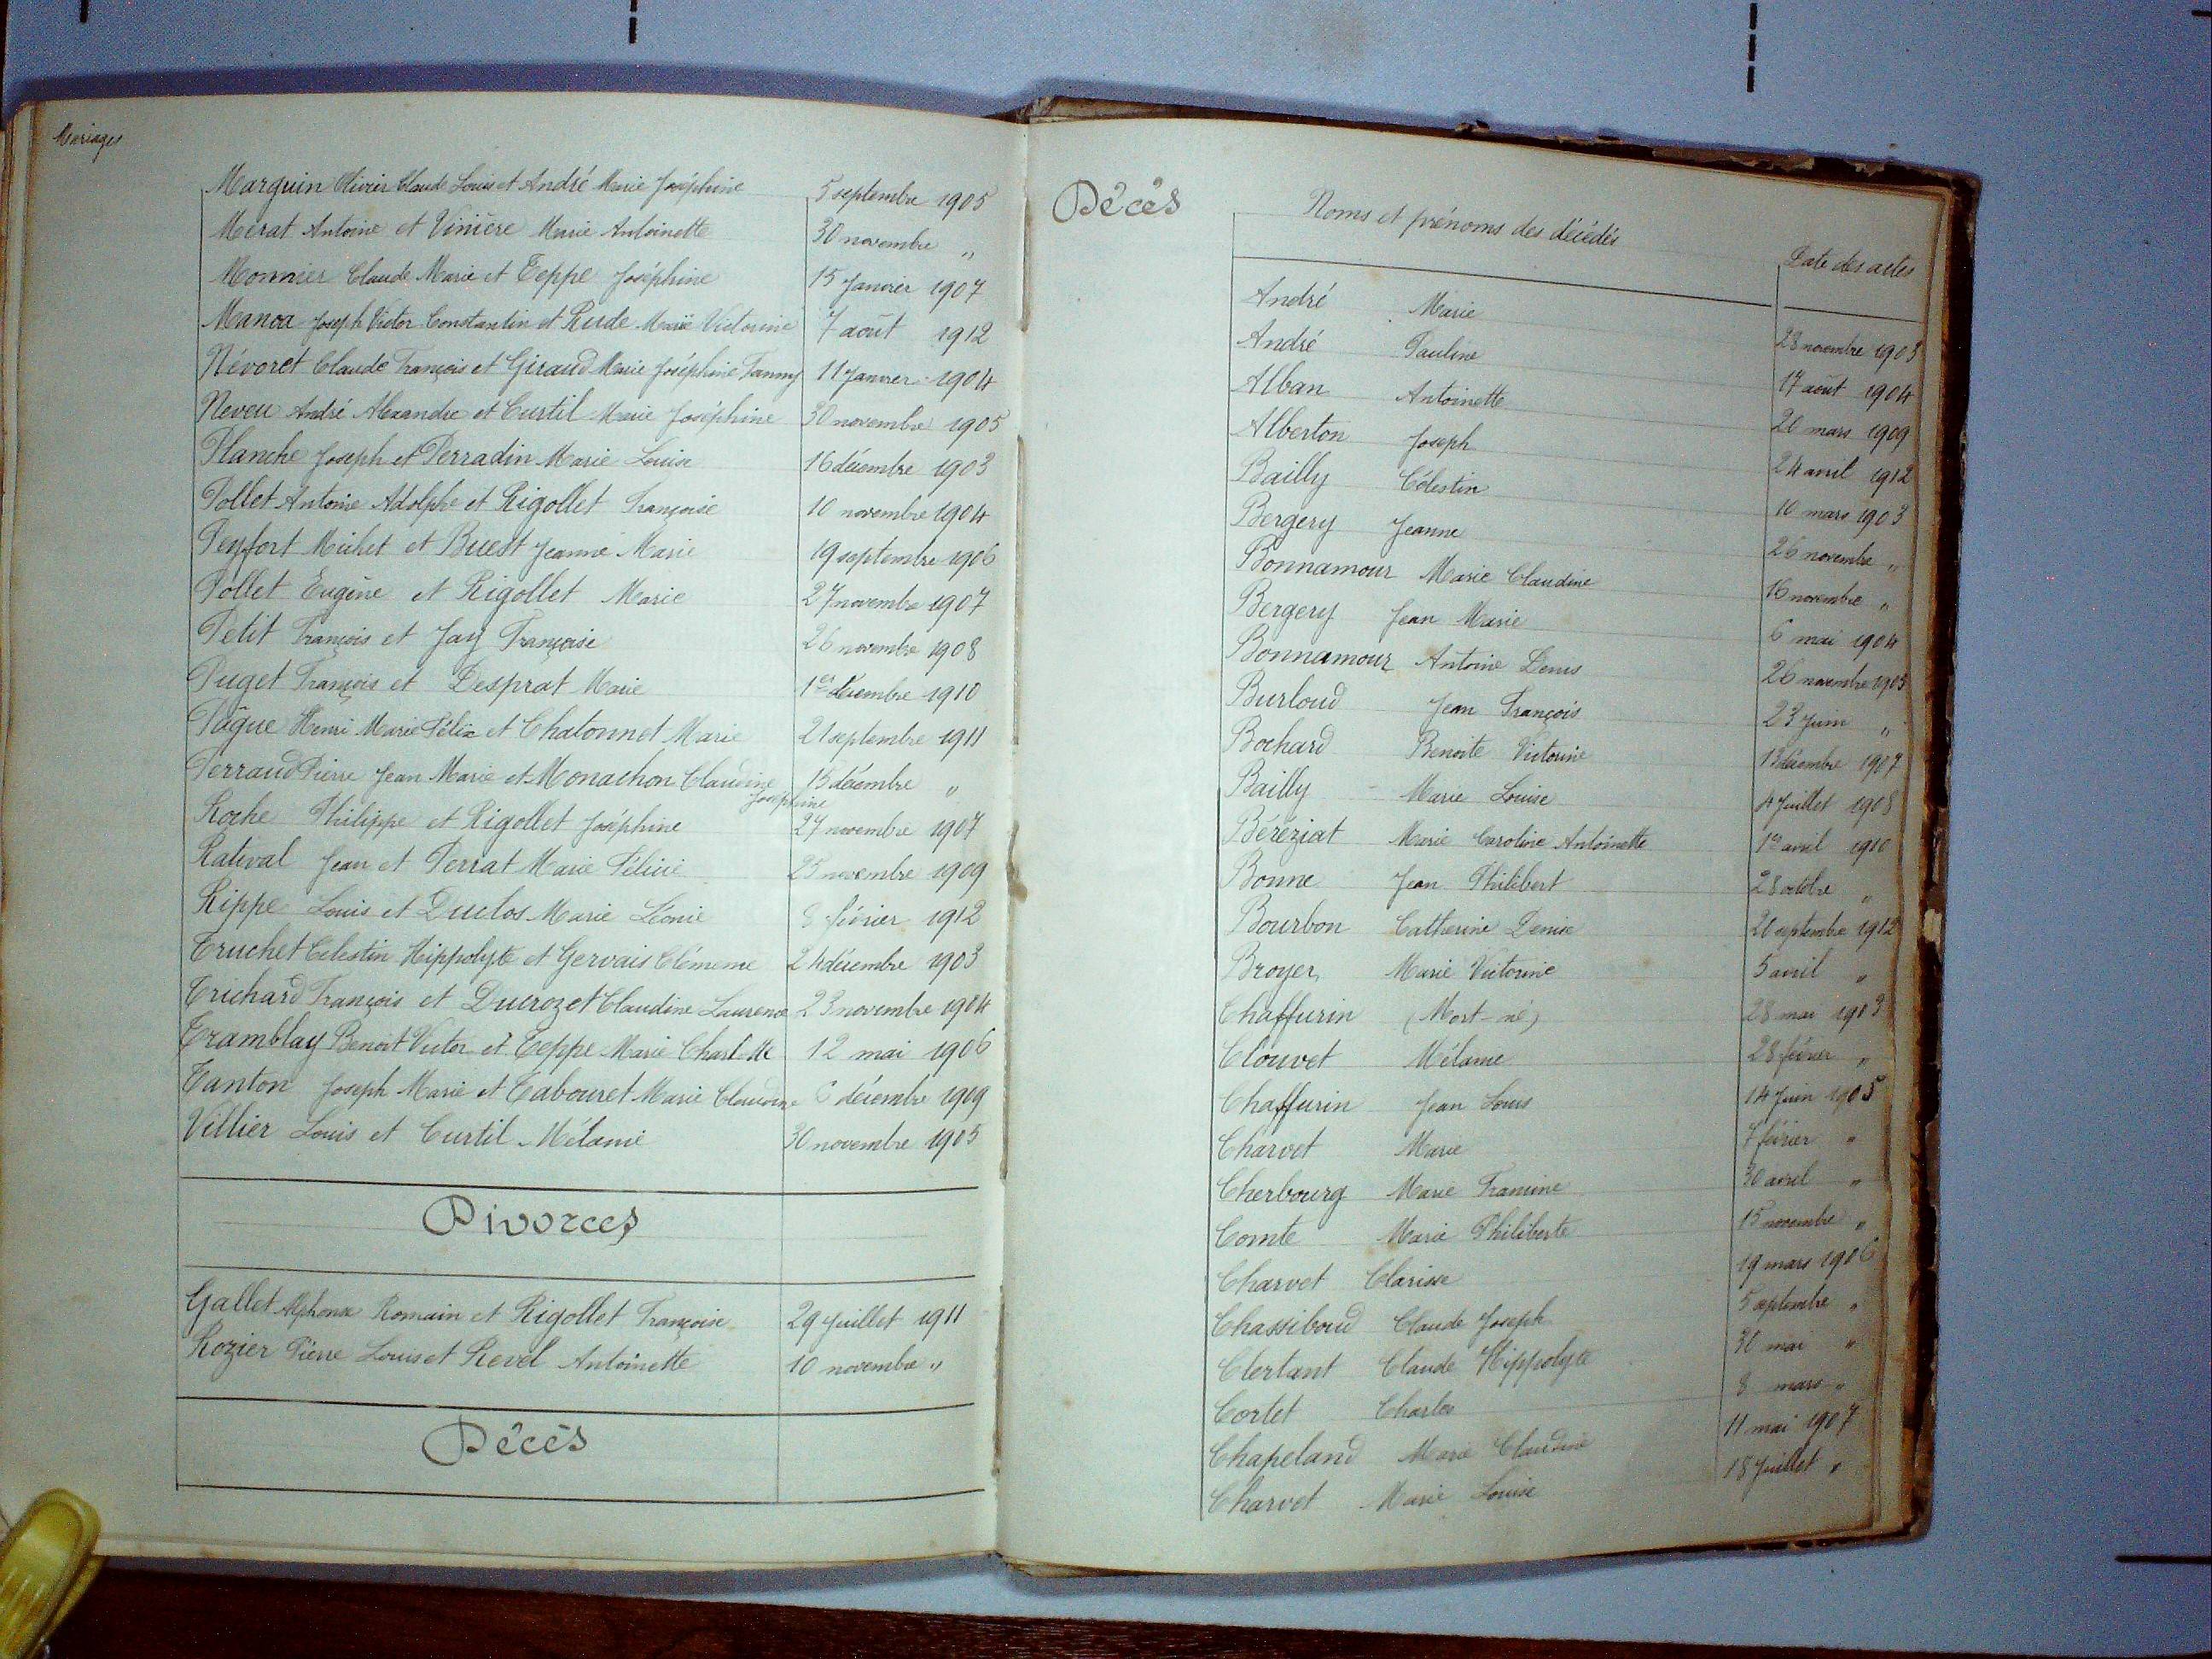 Mariages
Marguin Olivier Claude Louis et André Marie Joséphine 5 septembre 1905
Mérat Antoine et Vinière Marie Antoinette 30 novembre "
Monnier Claude Marie et Teppe Joséphine 15 Janvier 1907
Manoa Joseph Victor Constantin et Rude Marie Victorine 7 août 1912
Névoret Claude François et Giraud Marie Joséphine Fanny 11 Janvier 1904
Neveu André Alexandre et Curtil Marie Joséphine 30 novembre 1905
Planche Joseph et Perradin Marie Louise 16 décembre 1903
Pollet Antoine Adolphe et Rigollet Françoise 10 novembre 1904
Peyfort Michel et Buest Jeanne Marie 19 septembre 1906
Pollet Eugène et Rigollet Marie 27 novembre 1907
Petit François et Jay Françoise 26 novembre 1908
Puget François et Desprat Marie 1er décembre 1910
Pâgue Henri Marie Félix et Chatonnet Marie 21 septembre 1911
Perraud Pierre Jean Marie et Monachon Claudine Joséphine 15 décembre "
Roche Philippe et Rigollet Joséphine 27 novembre 1907
Rativat Jean et Perrat Marie Félicie 25 novembre 1909
Rippe Louis et Duclos Marie Léonie 8 février 1912
Truchet Célestin Hippolyte et Gervais Clémence 24 décembre 1903
Trichard François et Ducrozet Claudine Laurence 23 novembre 1904
Tramblay Benoit Victor et Teppe Marie Charlotte 12 mai 1906
Tanton Joseph Marie et Tabouret Marie Claudine 6 décembre 1909
Villier Louis et Curtil Mélanie 30 novembre 1905
Divorces
Gallet Alphonse Romain et Rigollet Françoise 29 Juillet 1911
Rozier Pierre Louis et Revel Antoinette 10 novembre "
Décès
Décès
Noms et prénoms des décédés Date des actes
André Marie 28 novembre 1903
André Pauline 17 août 1904
Alban Antoinette 26 mars 1909
Alberton Joseph 24 avril 1912
Bailly Célestin 10 mars 1903
Bergery Jeanne 26 novembre "
Bonnamour Marie Claudine 16 novembre "
Bergery Jean Marie 6 mai 1904
Bonnamour Antoine Denis 26 novembre 1905
Burloud Jean François 23 Juin "
Bochard Benoite Victorine 13 décembre 1907
Bailly Marie Louise 4 Juillet 1908
Béréziat Marie Caroline Antoinette 1er avril 1910
Bonne Jean Philibert 28 octobre "
Bourbon Catherine Denise 20 septembre 1912
Broyer Marie Victorine 5 avril "
Chaffurin (Mort-né) 28 mai 1903
Clouvet Mélanie 28 février "
Chaffurin Jean Louis 14 Juin 1905
Charvet Marie 7 février "
Cherbourg Marie Francine 30 avril "
Comte Marie Philiberte 15 novembre "
Charvet Clarisse 19 mars 1906
Chassiboud Claude Joseph 5 septembre "
Clertant Claude Hippolyte 30 mai "
Cortet Charles 8 mars "
Chapeland Marie Claudine 11 mai 1907
Charvet Marie Louise 18 Juillet "